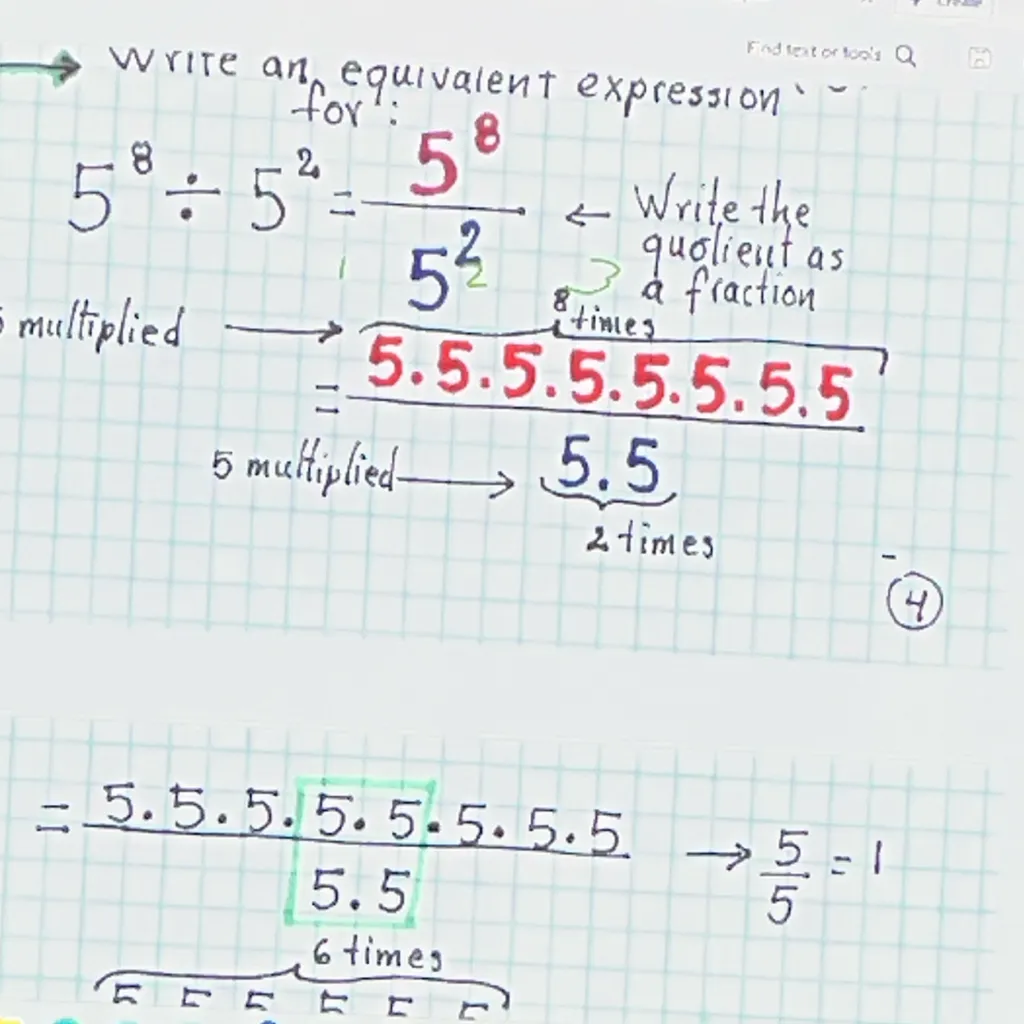 Find text or tools
→ Write an equivalent expression
for :
5⁸ ÷ 5² = 5⁸ / 5² ← Write the
quolient as
a fraction
1 2 3
8 times
multiplied →
= 5.5.5.5.5.5.5.5 / 5.5
5 multiplied →
2 times
4
= 5.5.5.5.5.5.5.5 / 5.5 → 5/5 = 1
6 times
5 5 5 5 5 5